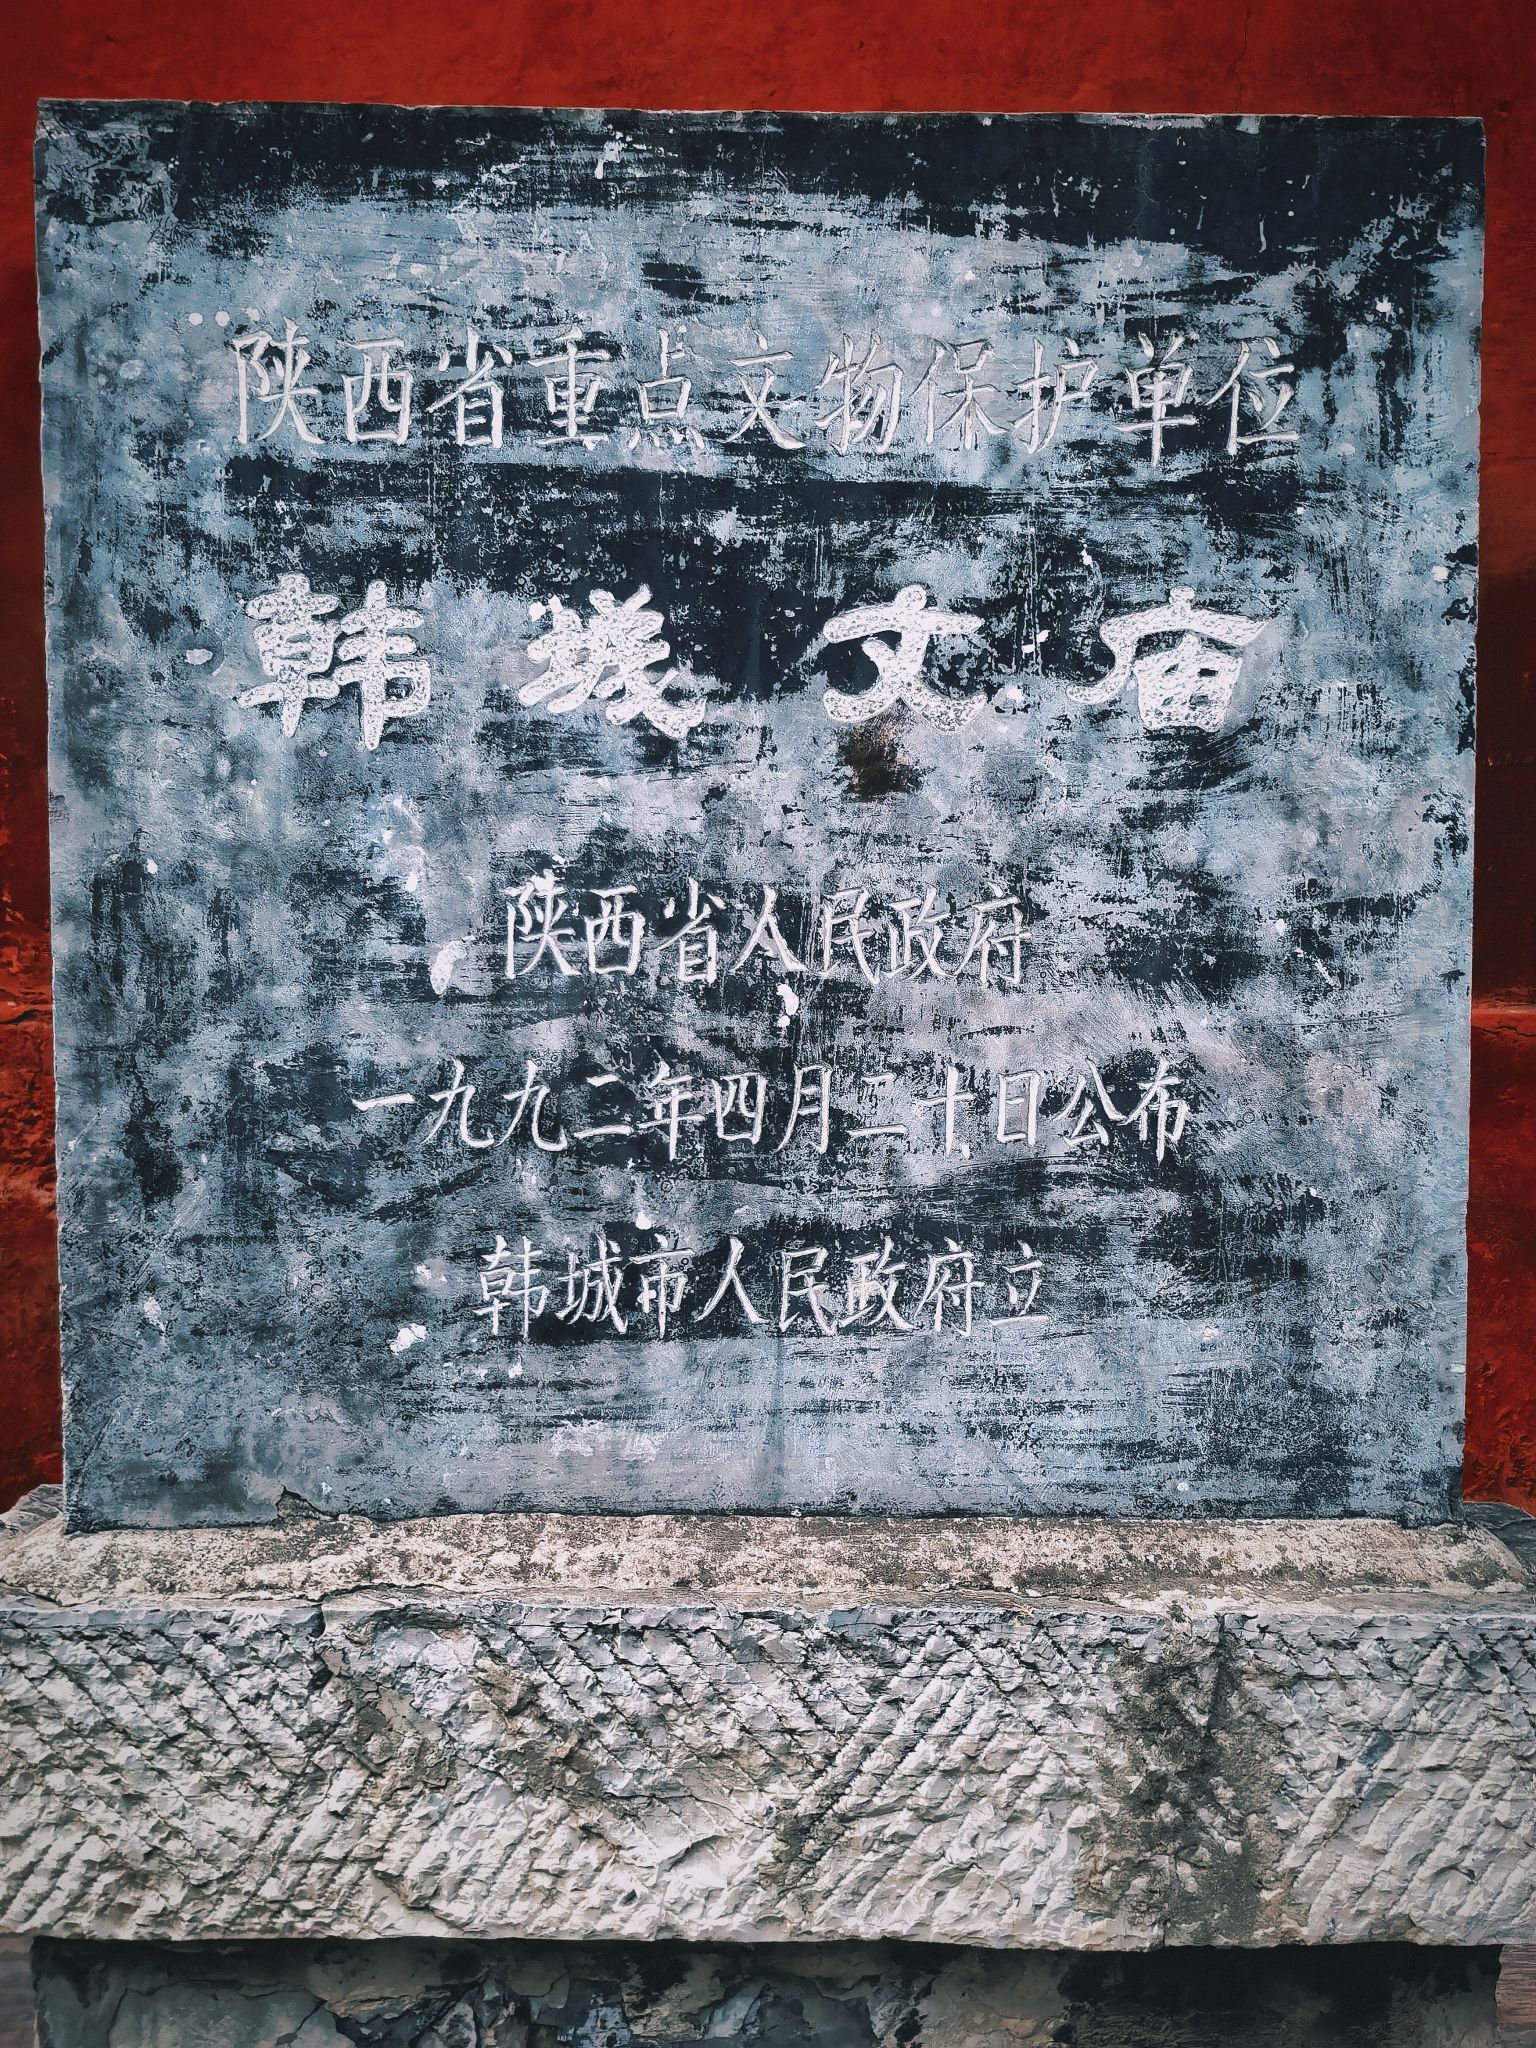 陕西省重点文物保护单位
韩城文庙
陕西省人民政府
一九九二年四月二十日公布
韩城市人民政府立